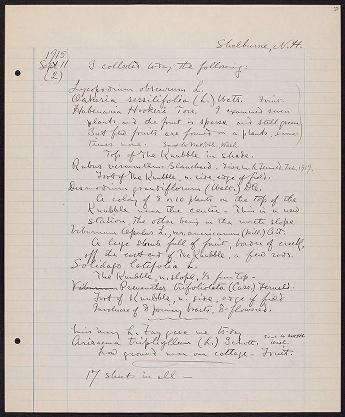 Shelburne, N.H.
1915
Sept. 11
(2)
I collected today the following:
Lycopodium obscurum L.
Oakesia sessilifolia (L.) Wats. Fruit.
Habenaria Hookeri Torr. I examined seven
plants and the fruit is sparse and still green.
But few fruits are found on a plant, some
times none.
Top of The Knubble in shade.
Rubus vermontanus Blanchard
Foot of The Knubble, n. side, edge of field.
Desmodium grandiflorum (Walt.) DC.
A colony of 8 or 10 plants on the top of the
Knubble near the center. This is a new
station, the other being on the north slope.
Viburnum Opulus L., var. americanum (Mill.) Ait.
A large shrub full of fruit, bank of creek,
off the east end of The Knubble, a few rods.
Solidago latifolia L.
The Knubble, n. slope, 1/3 from top.
Prenanthes trifoliolata (Cass.) Fernald.
Foot of Knubble, n. side, edge of field
Involucre of 8 primary bracts, 8-flowered.
Miss Mary L. gave me today
Arisaema triphyllum (L.) Schott.
Low ground near our cottage - Fruit.
17 sheets in all —